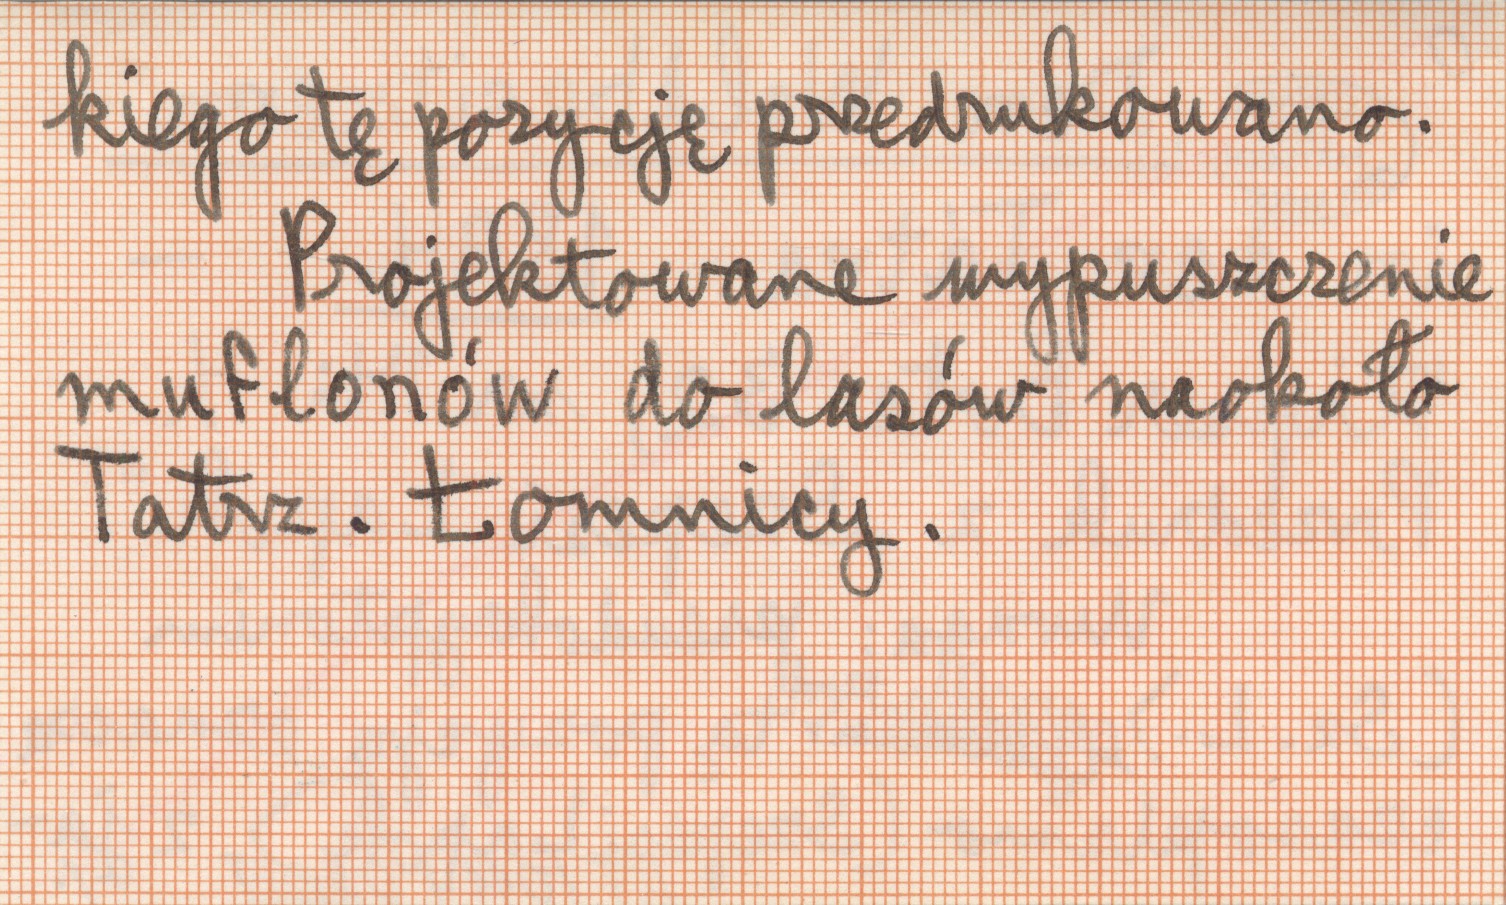 kiego tę pozycję przedrukowano.
Projektowane wypuszczenie
muflonów do lasów naokoło
Tatrz. Łomnicy.